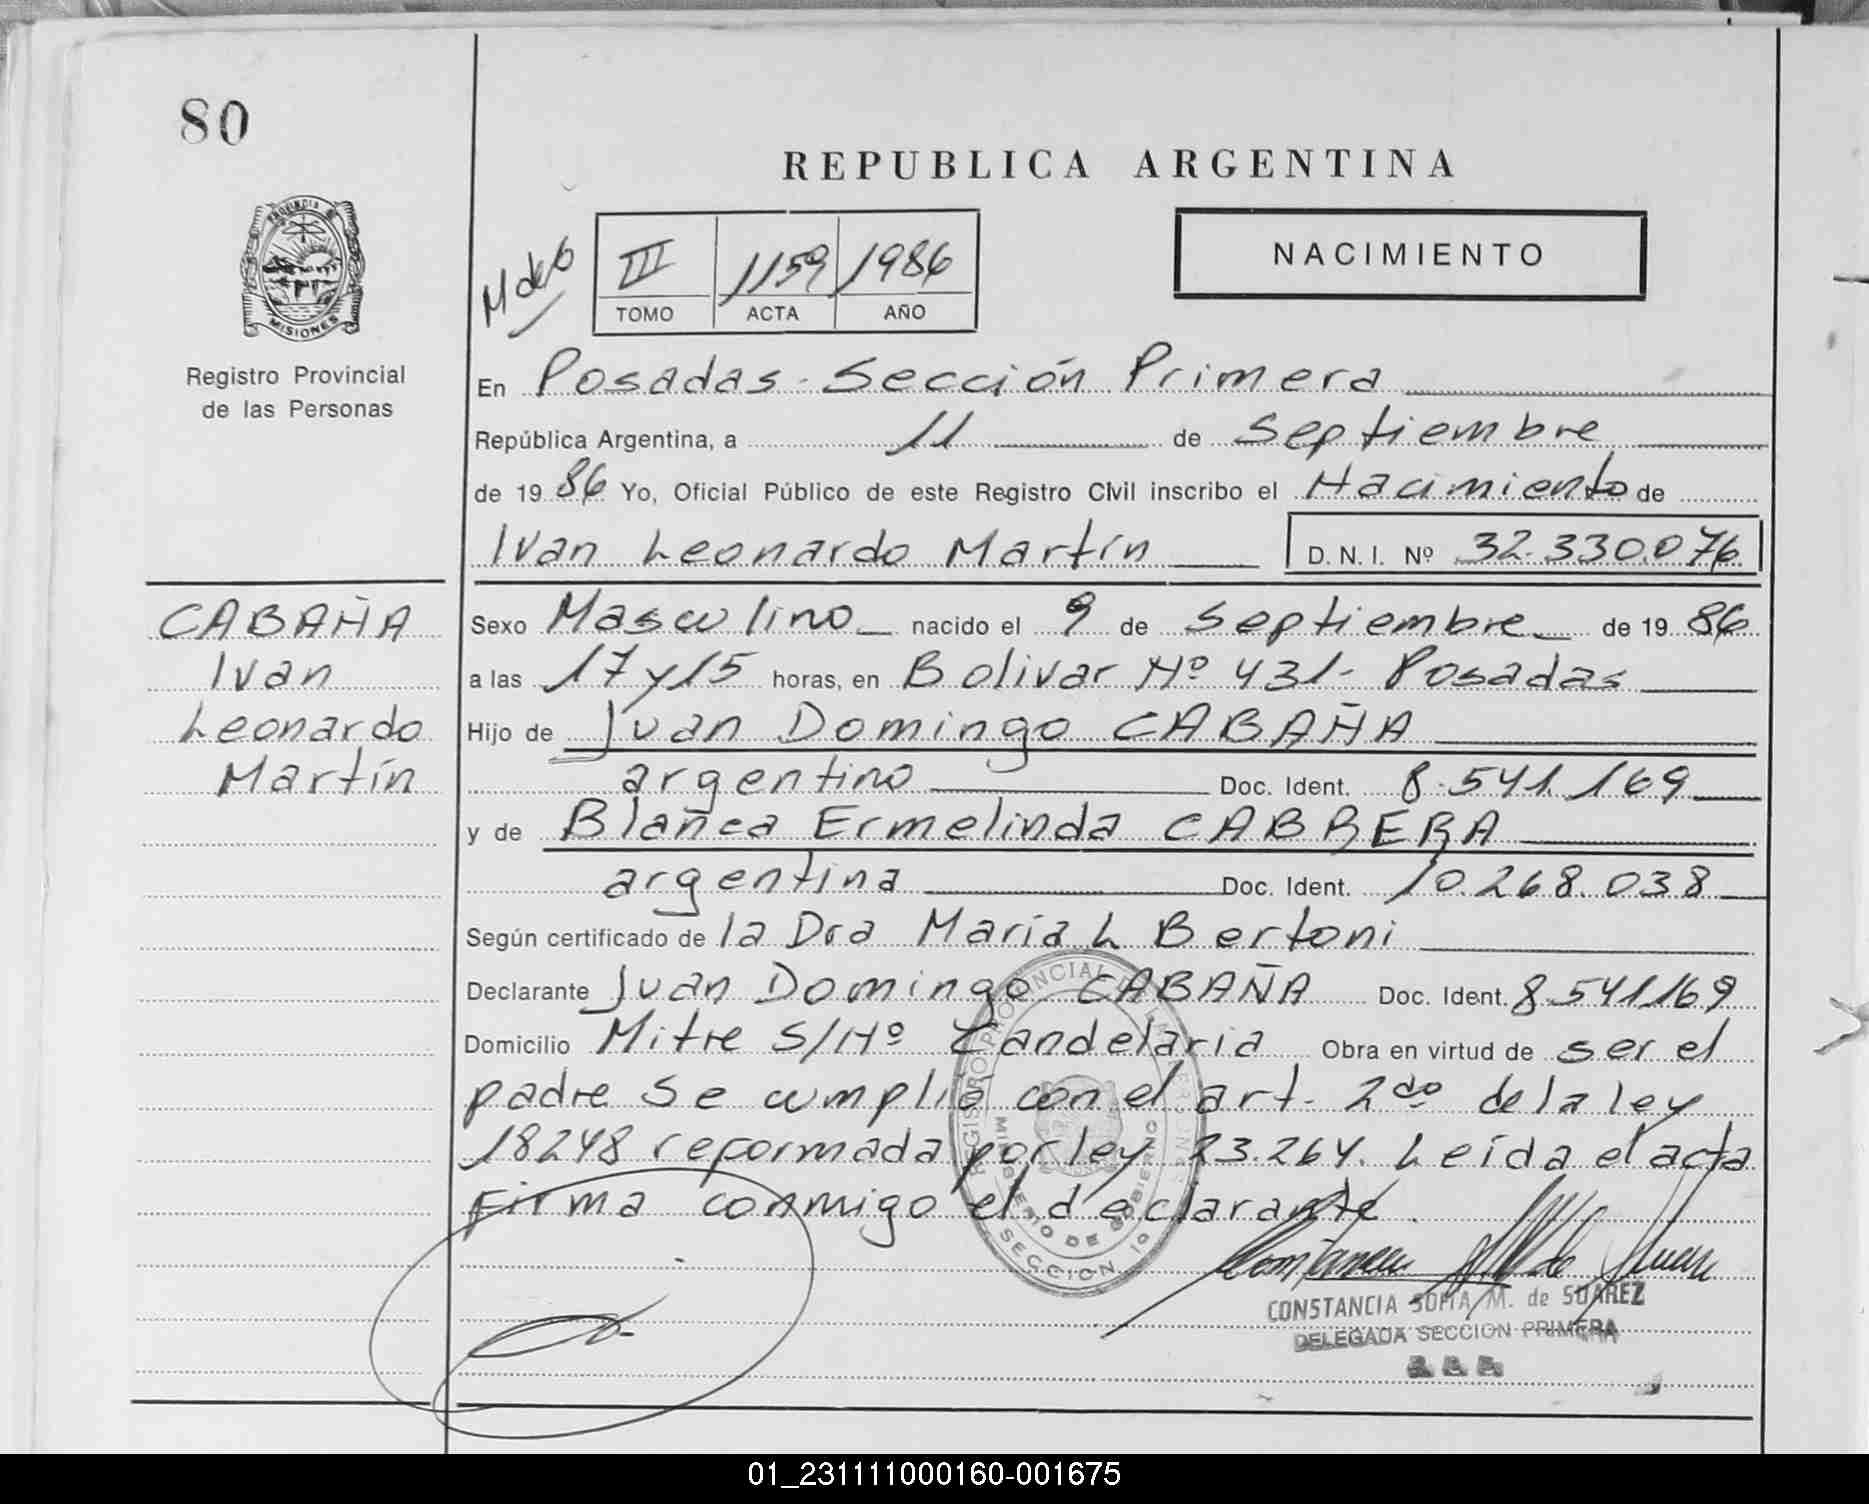 80
REPUBLICA ARGENTINA
PROVINCIA DE
MISIONES
III 1159 1986
TOMO ACTA AÑO
NACIMIENTO
Registro Provincial
de las Personas
En Posadas. Sección Primera
República Argentina, a 11 de Septiembre
de 19 86 Yo, Oficial Público de este Registro Civil inscribo el Nacimiento de
Ivan Leonardo Martín D.N.I. Nº 32.330.076
CABAÑA
Ivan
Leonardo
Martín
Sexo Masculino nacido el 9 de Septiembre de 19 86
a las 17 y 15 horas, en Bolivar Nº 431- Posadas
Hijo de Juan Domingo CABAÑA
argentino Doc. Ident. 8.541.169
y de Blanca Ermelinda CABRERA
argentina Doc. Ident. 10.268.038
Según certificado de la Dra María L Bertoni
Declarante Juan Domingo CABAÑA Doc. Ident. 8.541169
Domicilio Mitre S/Nº Candelaria Obra en virtud de ser el
padre Se cumplió con el art. 2do de la ley
18248 reformada por ley 23.264. Leída el acta
Firma conmigo el declarante.
REGISTRO PROVINCIAL DE LAS PERSONAS
MINISTERIO DE GOBIERNO
SECCION 1º
CONSTANCIA SOFIA M. de SUAREZ
DELEGADA SECCION PRIMERA
01_231111000160-001675